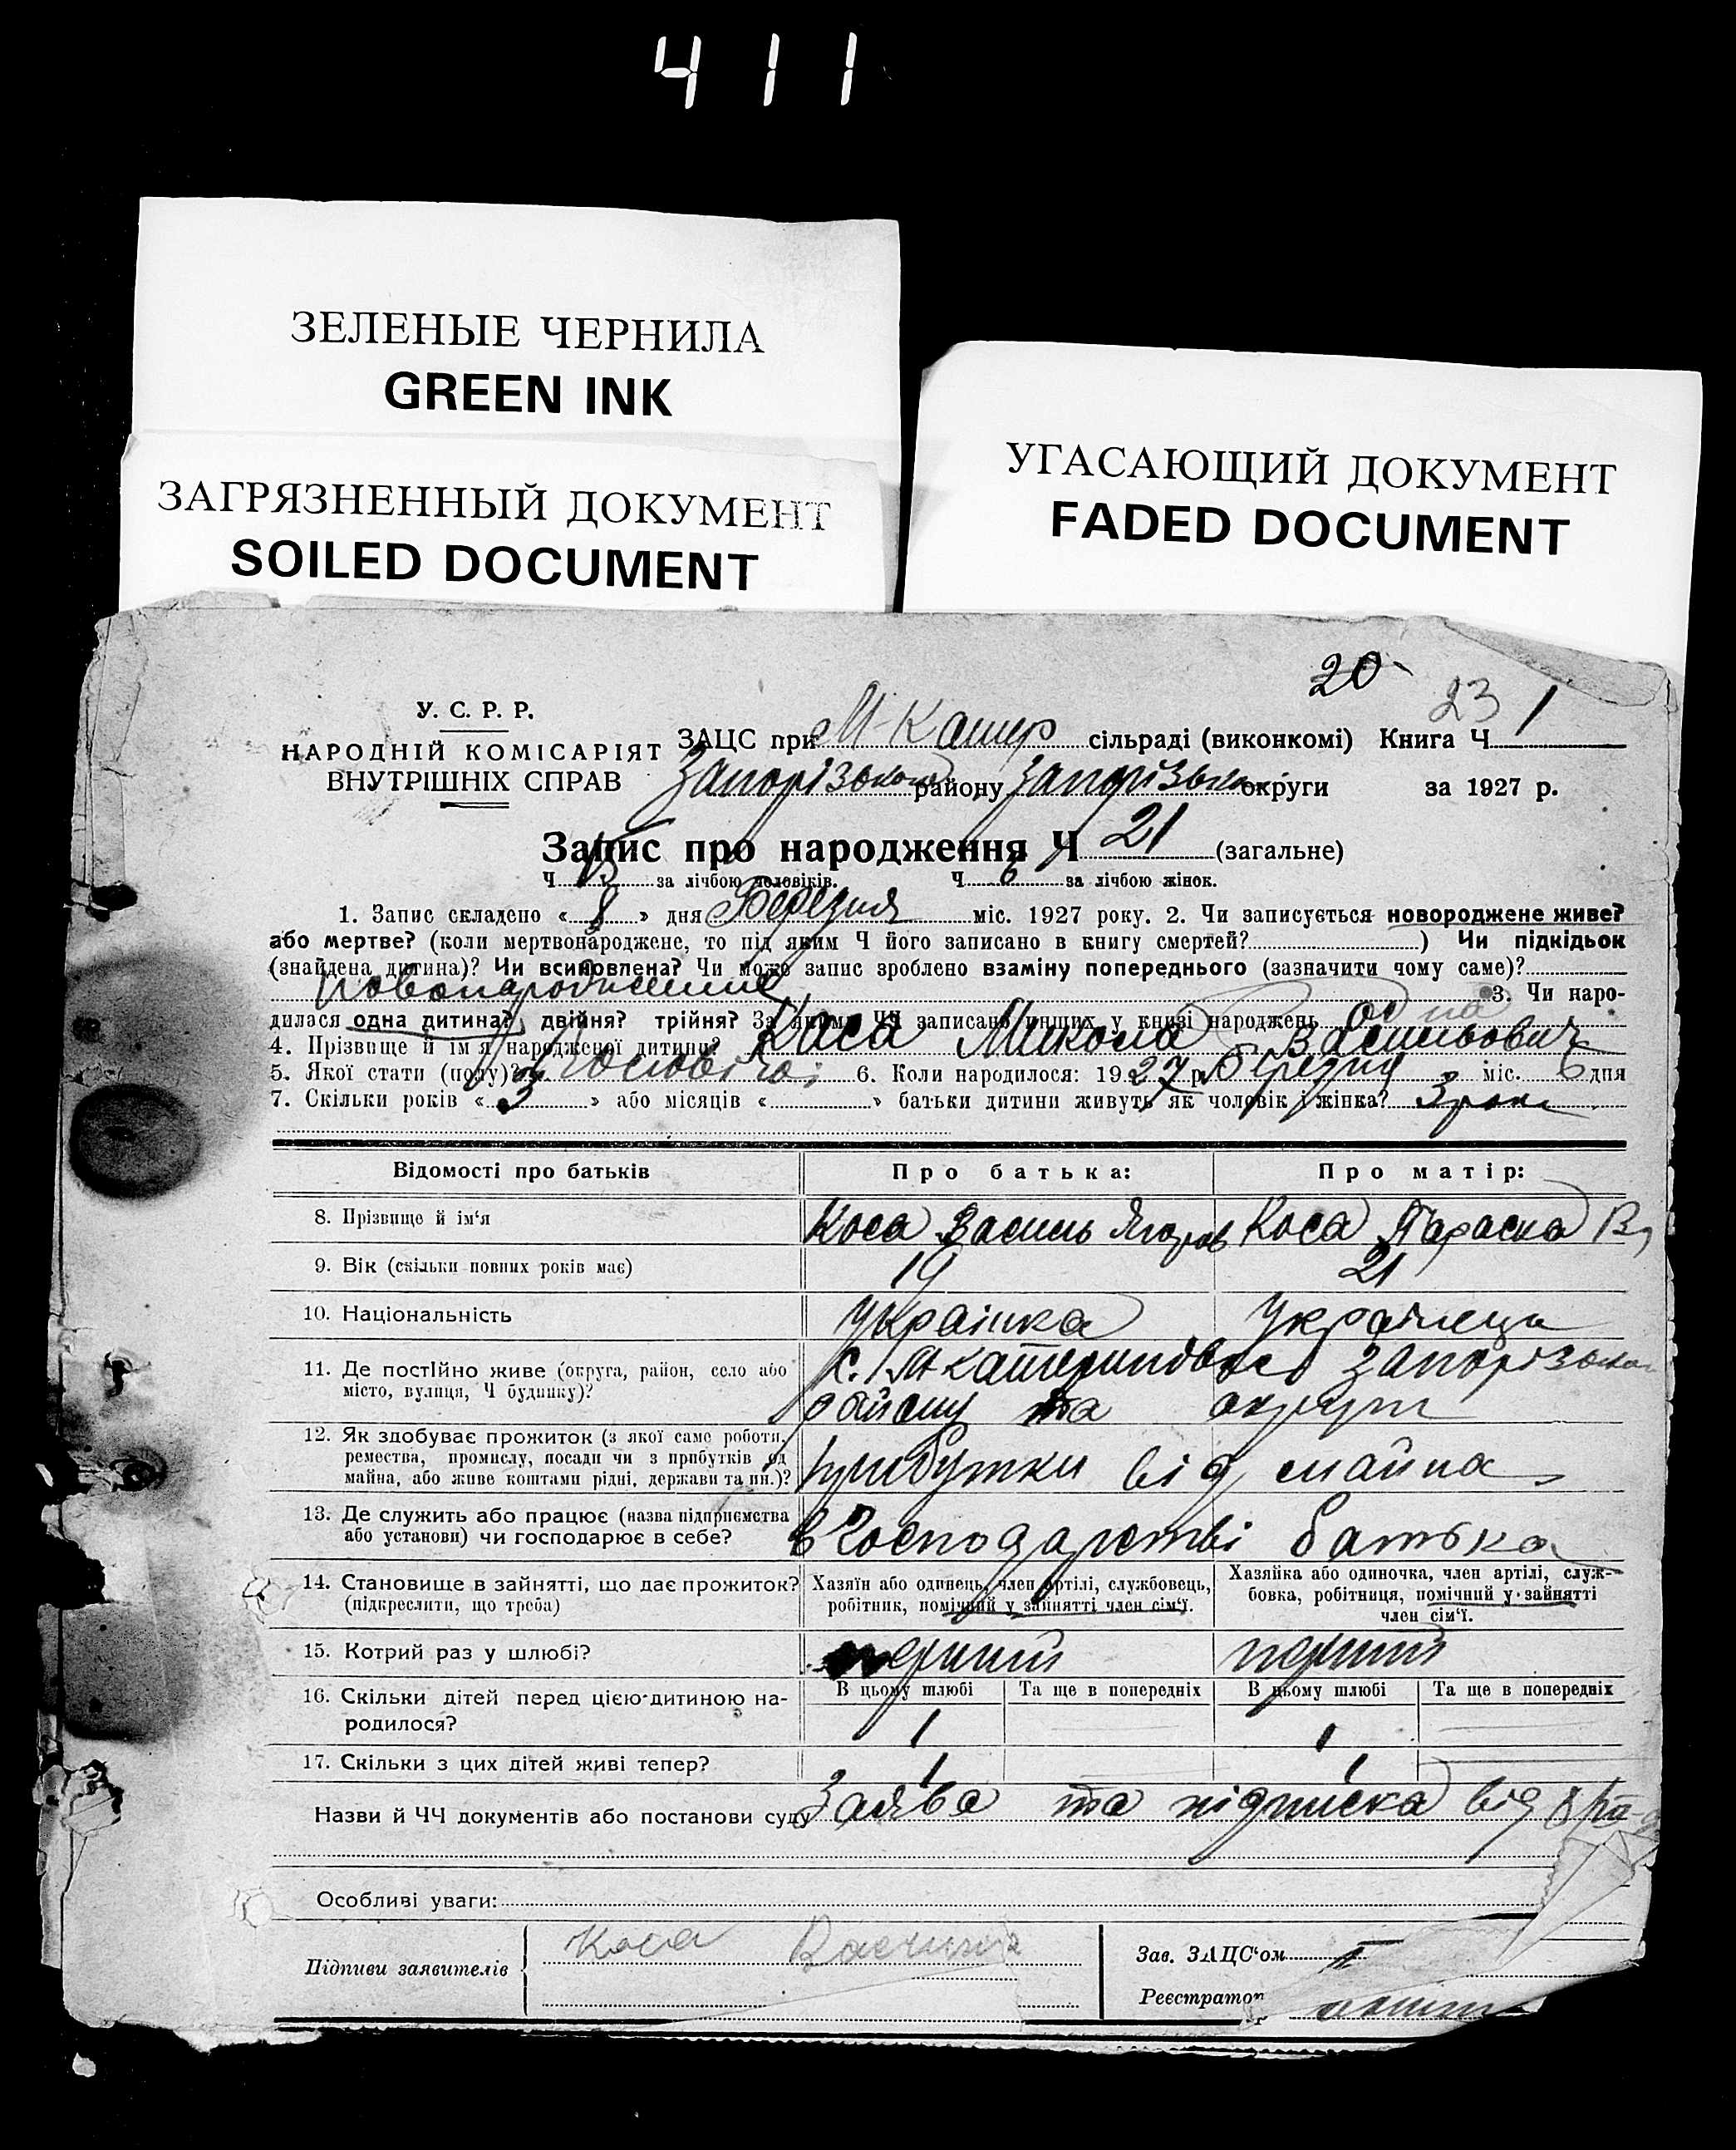 411
ЗЕЛЕНЫЕ ЧЕРНИЛА
GREEN INK
ЗАГРЯЗНЕННЫЙ ДОКУМЕНТ
SOILED DOCUMENT
УГАСАЮЩИЙ ДОКУМЕНТ
FADED DOCUMENT
20
23
У. С. Р. Р.
НАРОДНІЙ КОМІСАРІЯТ
ВНУТРІШНІХ СПРАВ
ЗАЦС при М-Катер сільраді (виконкомі) Книга Ч. 1
Запорізького району Запорізько округи за 1927 р.
Запис про народження Ч 21 (загальне)
Ч. 15 за лічбою чоловіків. Ч. 6 за лічбою жінок.
1. Запис складено « 8 » дня Березня міс. 1927 року. 2. Чи записується новороджене живе?
або мертве? (коли мертвонароджене, то під яким Ч його записано в книгу смертей? ) Чи підкідьок
(знайдена дитина)? Чи всиновлена? Чи може запис зроблено взаміну попереднього (зазначити чому саме)?
3. Чи наро-
дилася одна дитина? двійня? трійня? За якими ЧЧ записано инших у книзі народжень одна
4. Прізвище й ім'я народженої дитини? Коса Микола Васильович
5. Якої стати (полу)? 6. Коли народилося: 1927 р. Березня міс. 6 дня
7. Скільки років « 3 » або місяців « » батьки дитини живуть як чоловік і жінка? 3 роки
Відомості про батьків Про батька: Про матір:
8. Прізвище й ім'я Коса Василь Ягоров Коса Параска
9. Вік (скільки повних років має) 19 21
10. Національність Українка Українець
11. Де постійно живе (округа, район, село або місто, вулиця, Ч будинку)?
с. М-Катеринівка Запорізьког
району та округи
12. Як здобуває прожиток (з якої саме роботи,
ремества, промислу, посади чи з прибутків од
майна, або живе коштами рідні, держави та ин.)?
прибутки від майна
13. Де служить або працює (назва підприємства
або установи) чи господарює в себе?
в господарстві батька
14. Становище в зайнятті, що дає прожиток?
(підкреслити, що треба)
Хазяїн або одинець, член артілі, службовець,
робітник, помічний у зайнятті член сім'ї.
Хазяйка або одиночка, член артілі, служ-
бовка, робітниця, помічний у зайнятті
член сім'ї.
15. Котрий раз у шлюбі? перший перший
16. Скільки дітей перед цією дитиною на-
родилося?
В цьому шлюбі Та ще в попередніх В цьому шлюбі Та ще в попередніх
1 1
17. Скільки з цих дітей живі тепер? 1 1
Назви й ЧЧ документів або постанови суду Заява та підписка від 8
Особливі уваги:
Підписи заявителів
Коса
Зав. ЗАЦС'ом
Реєстратор